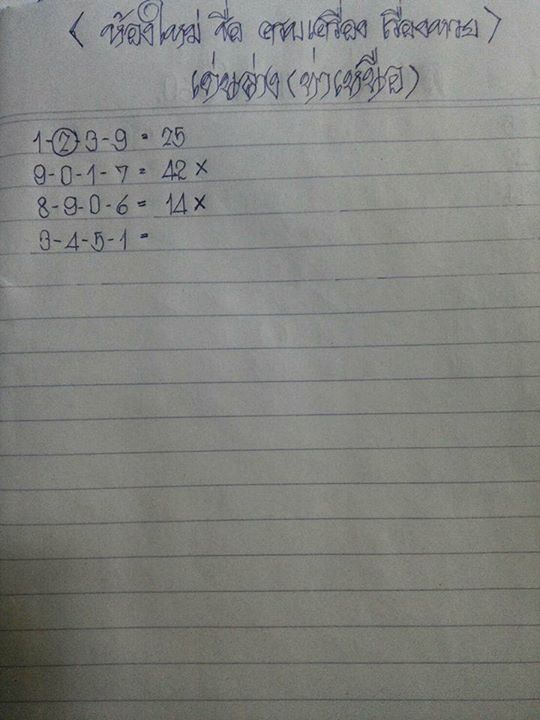 < ห้องใหม่ ชื่อ ครบเครื่อง เรื่องหวย >
เด่นล่าง (ท่าเหนือ)
1-2-3-9 = 25
9-0-1-7 = 42 ×
8-9-0-6 = 14 ×
3-4-5-1 =